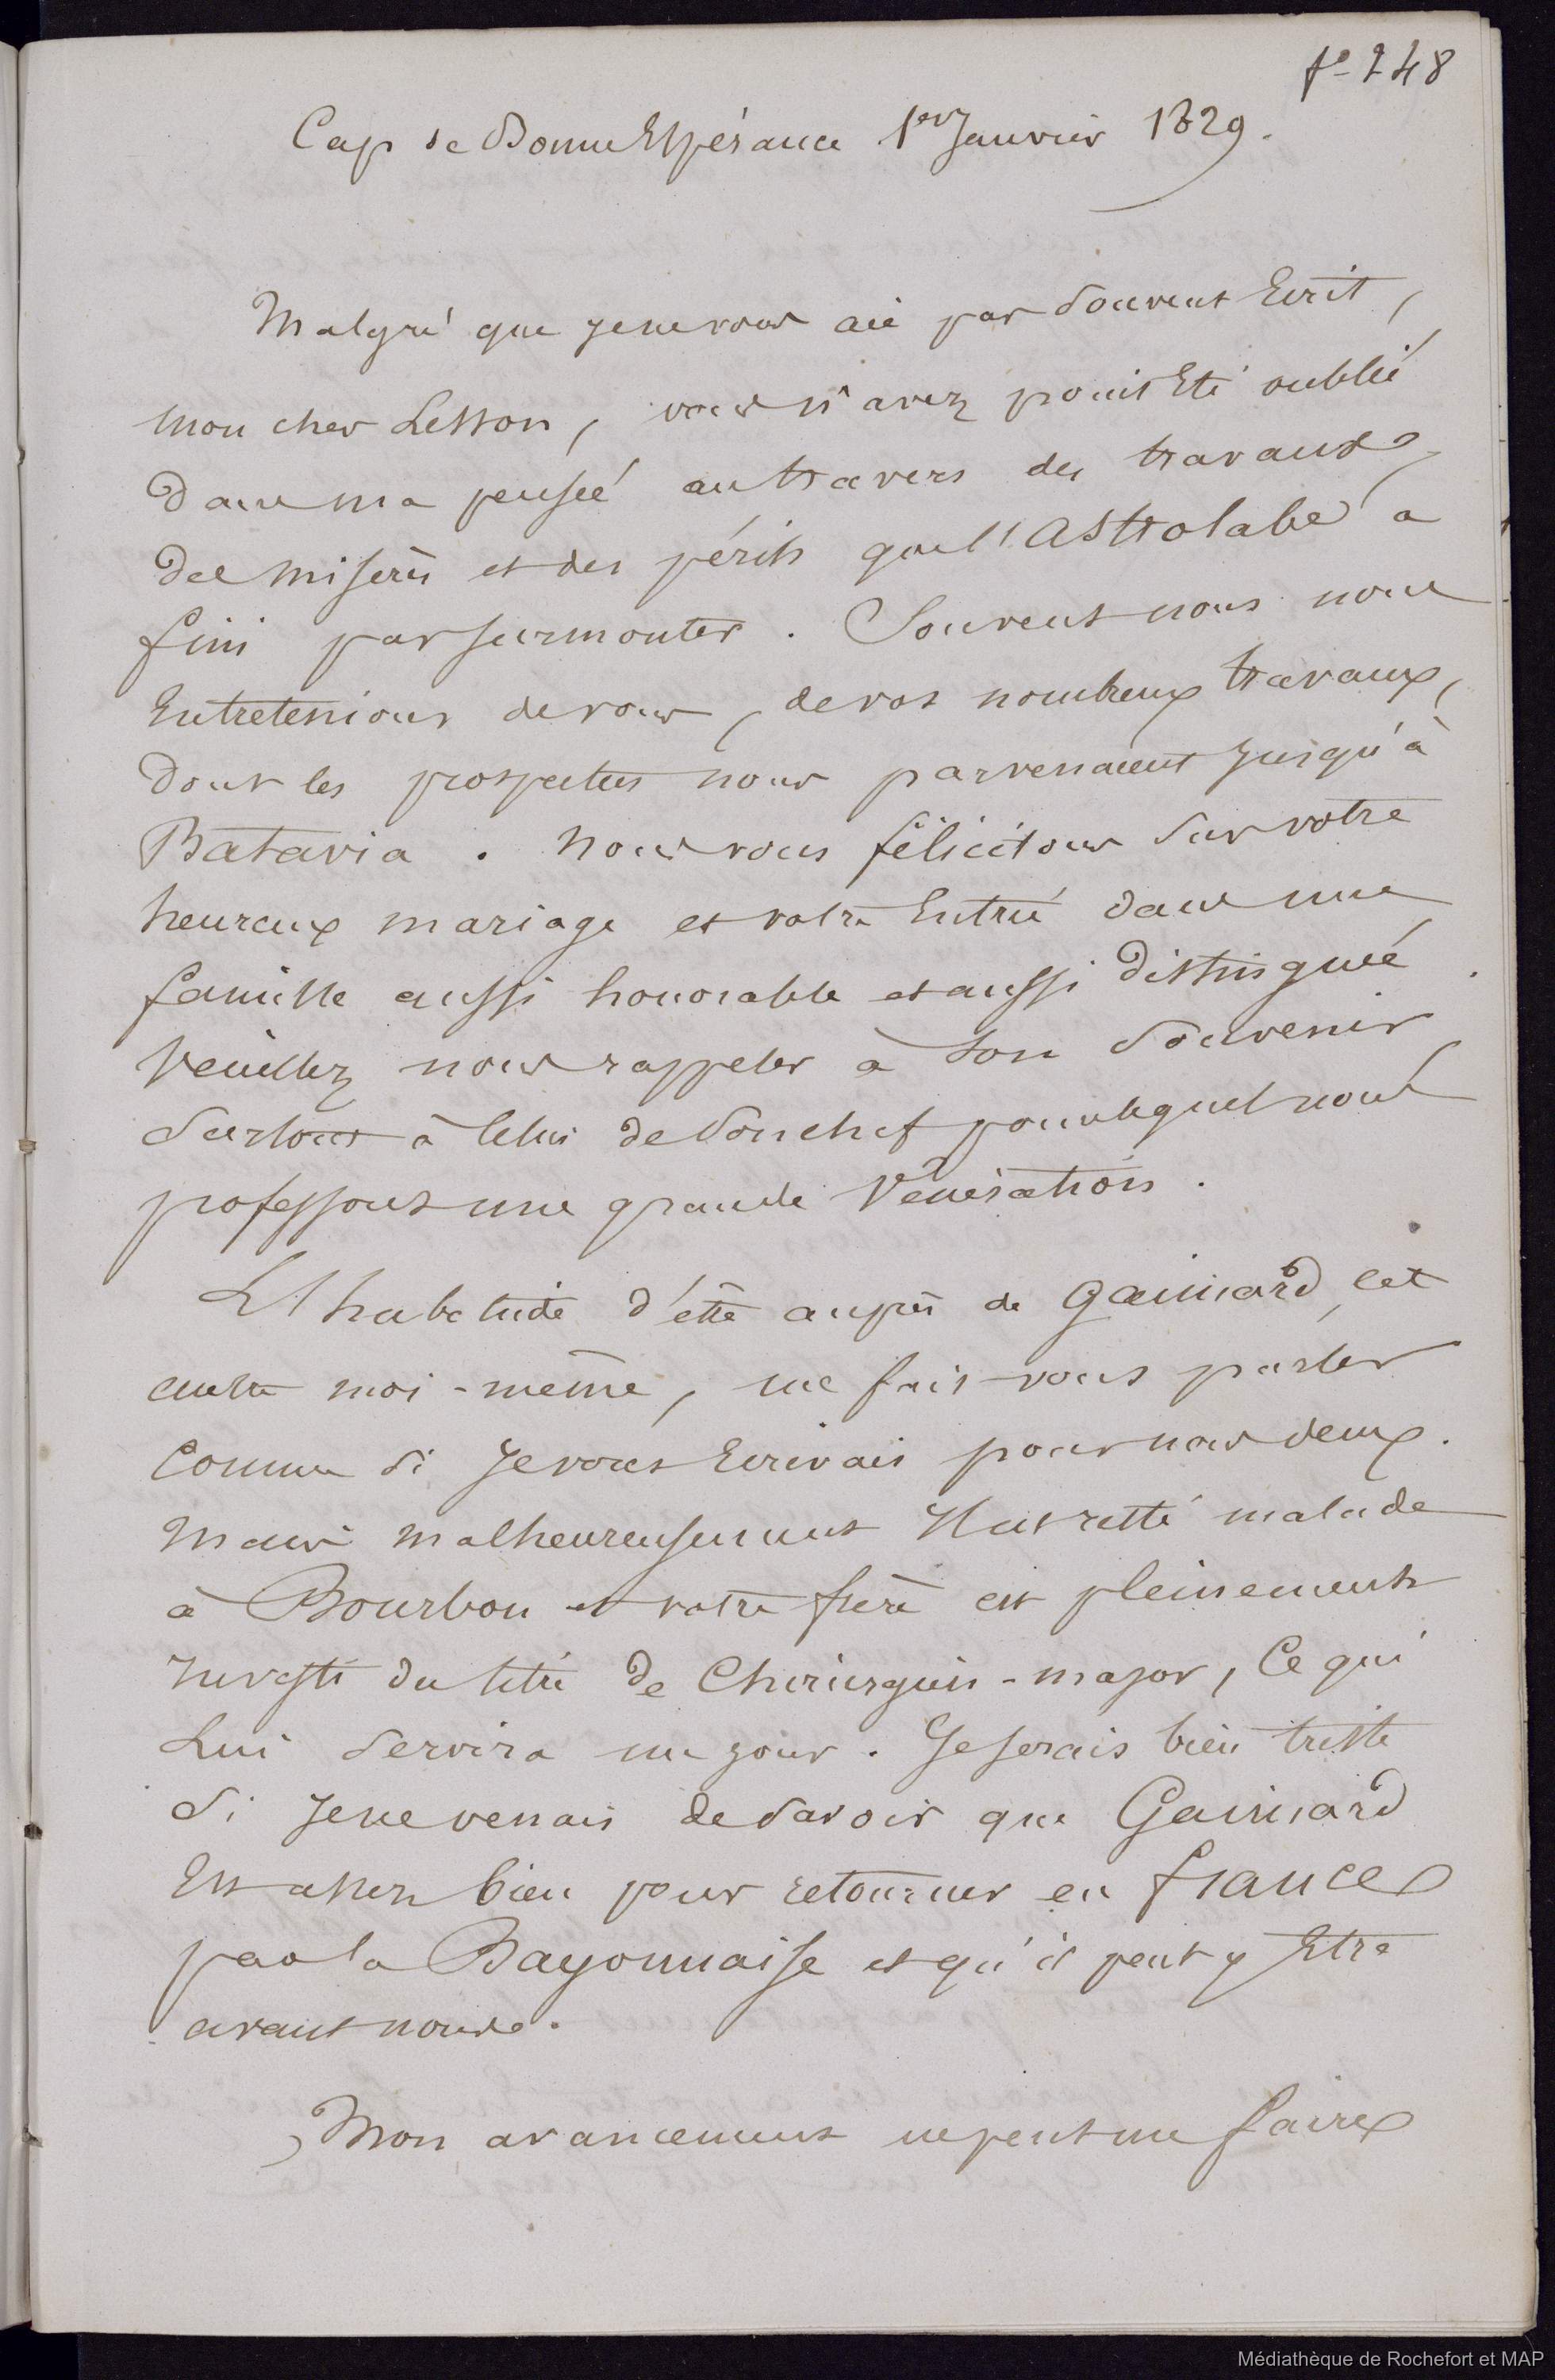 fo 248
Cap de Bonne Espérance 1er Janvier 1829.
Malgré que je ne vous aie pas souvent Ecrit,
mon cher Lesson, vous n'avez point Eté oublié
dans ma pensée au travers des travaux,
des misères et des périls que l'Astrolabe a
fini par surmonter. Souvent nous nous
Entretenions de vous, de vos nombreux travaux,
dont les prospectus nous parvenaient jusqu'à
Batavia. Nous vous félicitons sur votre
heureux mariage et votre Entrée dans une
famille aussi honorable et aussi distinguée.
Veuillez nous rappeler à son souvenir
surtout à celui de son chef pour lequel nous
professons une grande Vénération.
L'habitude d'être auprès de Gaimard, cet
autre moi-même, me fais vous parler
comme si je vous Ecrivais pour nous deux.
Mais malheureusement Il est resté malade
à Bourbon et votre frère est pleinement
investi du titre de Chirurgien-major, ce qui
Lui servira un jour. Je serais bien triste
si je ne venais de savoir que Gaimard
Est assez bien pour retourner en france
par la Bayonnaise et qu'il peut y Etre
avant nous.
Mon avancement ne peut me faire
Médiathèque de Rochefort et MAP